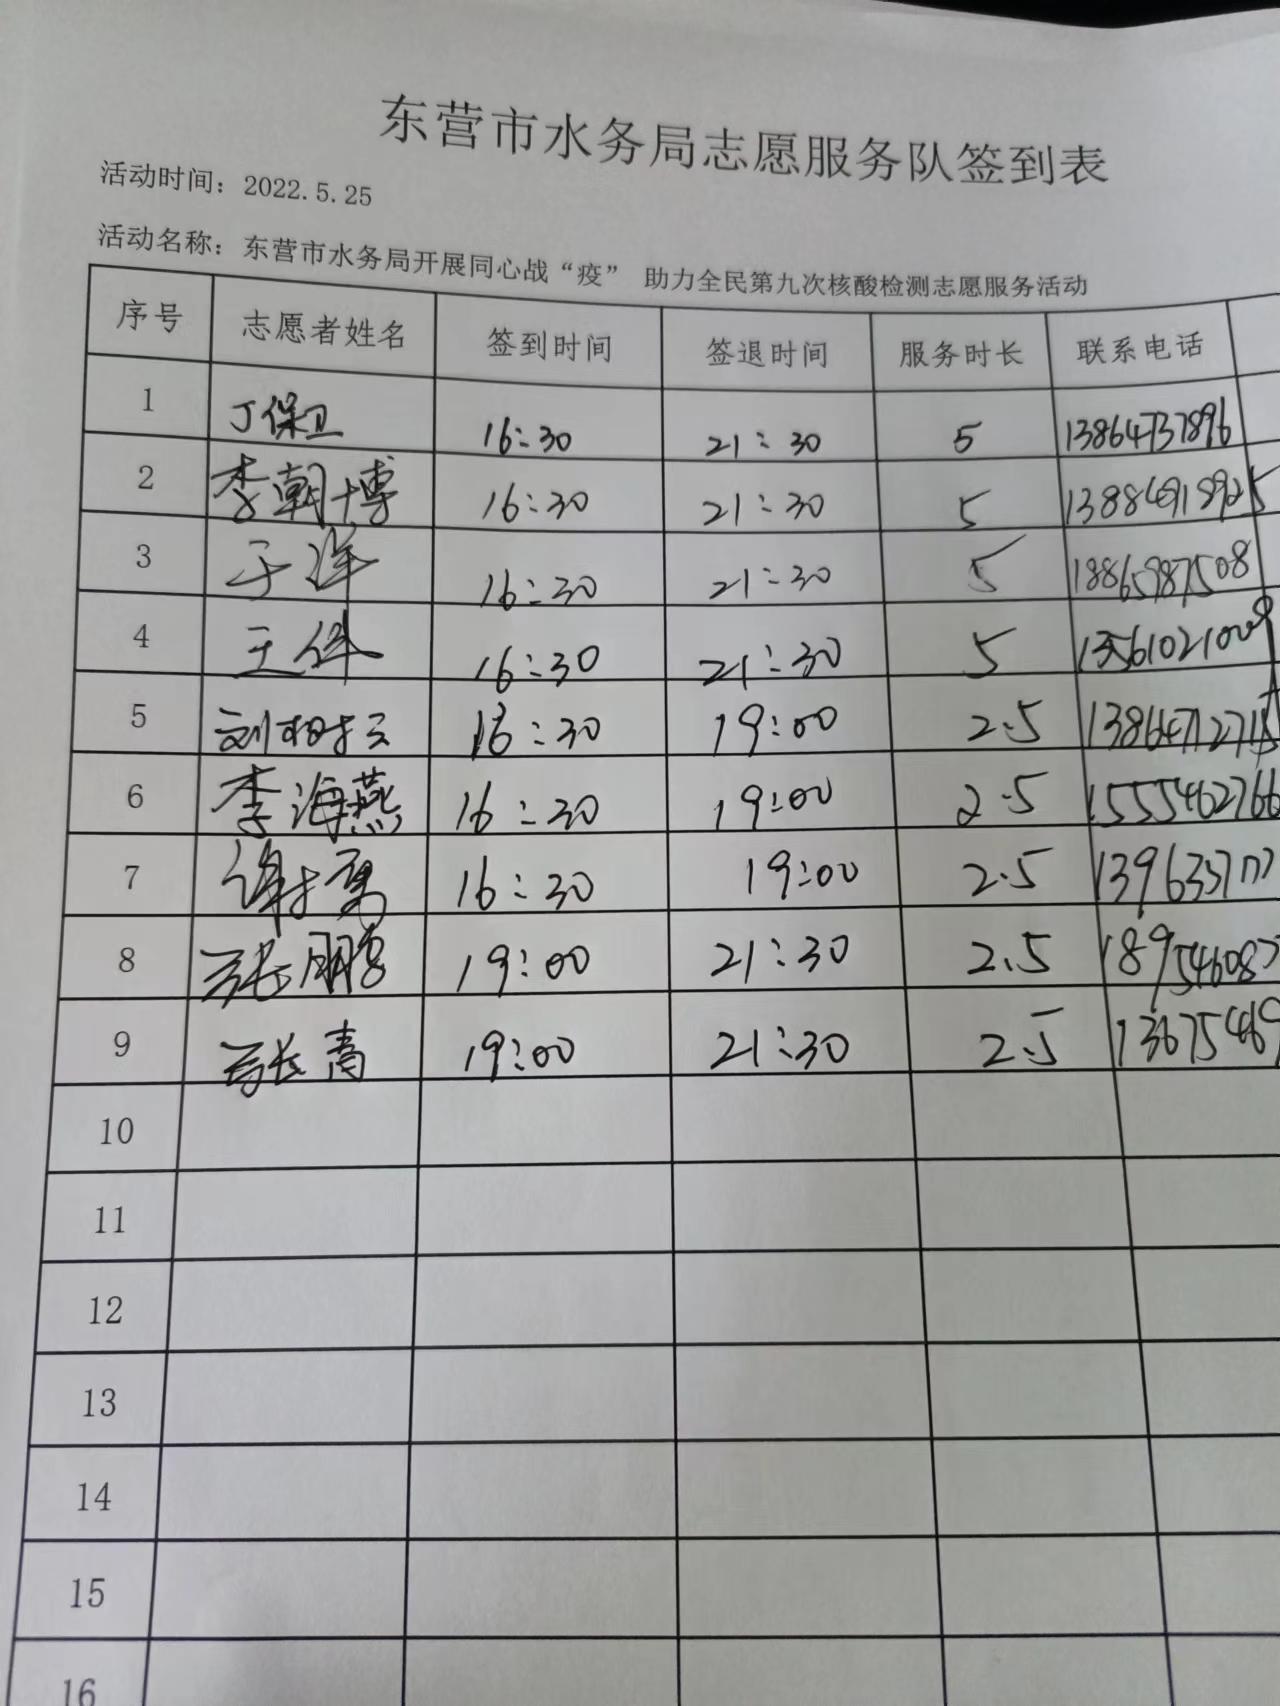 东营市水务局志愿服务队签到表
活动时间：2022.5.25
活动名称：东营市水务局开展同心战“疫” 助力全民第九次核酸检测志愿服务活动
序号 志愿者姓名 签到时间 签退时间 服务时长 联系电话
1 丁保卫 16:30 21:30 5 13864737896
2 李朝博 16:30 21:30 5
3 于洋 16:30 21:30 5 18865987508
4 王伟 16:30 21:30 5 13561021009
5 16:30 19:00 2.5
6 李海燕 16:30 19:00 2.5 1555462766
7 16:30 19:00 2.5
8 张鹏 19:00 21:30 2.5
9 19:00 21:30 2.5
10
11
12
13
14
15
16